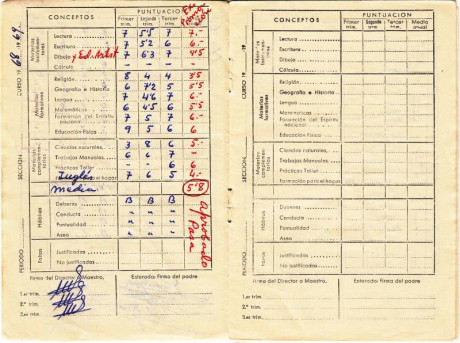 CONCEPTOS
PUNTUACIÓN
Primer trim. Segundo trim. Tercer trim.
CURSO 19 68 -19 69
Materias instrumentales
Lectura 7 5'5 7 6.-
Escritura 7 5'2 6 6.-
Dibujo y Ed. Artist 7 6'3 7 4'5
Cálculo
Materias formativas
Religión 8 4 4 3'5
Geografía e Historia 6 7'2 5 5'5
Lengua 7 4'6 7 6.-
Matemáticas 6 4'5 6 5'5
Formación del Espíritu nacional 7 5 7 6.-
Educación Física 9 5 6 6.-
SECCION
Materias complementarias
Ciencias naturales 3 8 6 5.-
Trabajos Manuales 6 6 7 -
Prácticas Taller - - 6 6.-
Inglés 7 6 5 4.-
Formación para el hogar
media 5'8
Hábitos
Deberes B B B
Conducta " " "
Trabajo " " "
Aseo " " "
Aprobado
Pasa
PERIODO
Faltas
Justificadas
No justificadas
Firma del Director o Maestro,
Enterado: Firma del padre
1.er trim.
2.º trim.
3.er trim.
CONCEPTOS
PUNTUACION
Primer trim. Segundo trim. Tercer trim. Media anual
CURSO 19 -19
Materias instrumentales
Lectura
Escritura
Dibujo
Cálculo
Materias formativas
Religión
Geografía e Historia
Lengua
Matemáticas
Formación del Espíritu nacional
Educación Física
SECCION
Materias complementarias
Ciencias naturales
Trabajos Manuales
Prácticas Taller
Formación para el hogar
Hábitos
Deberes
Conducta
Trabajo
Aseo
PERIODO
Faltas
Justificadas
No justificadas
Firma del Director o Maestro,
Enterado: Firma del padre
1.er trim.
2.º trim.
3.er trim.